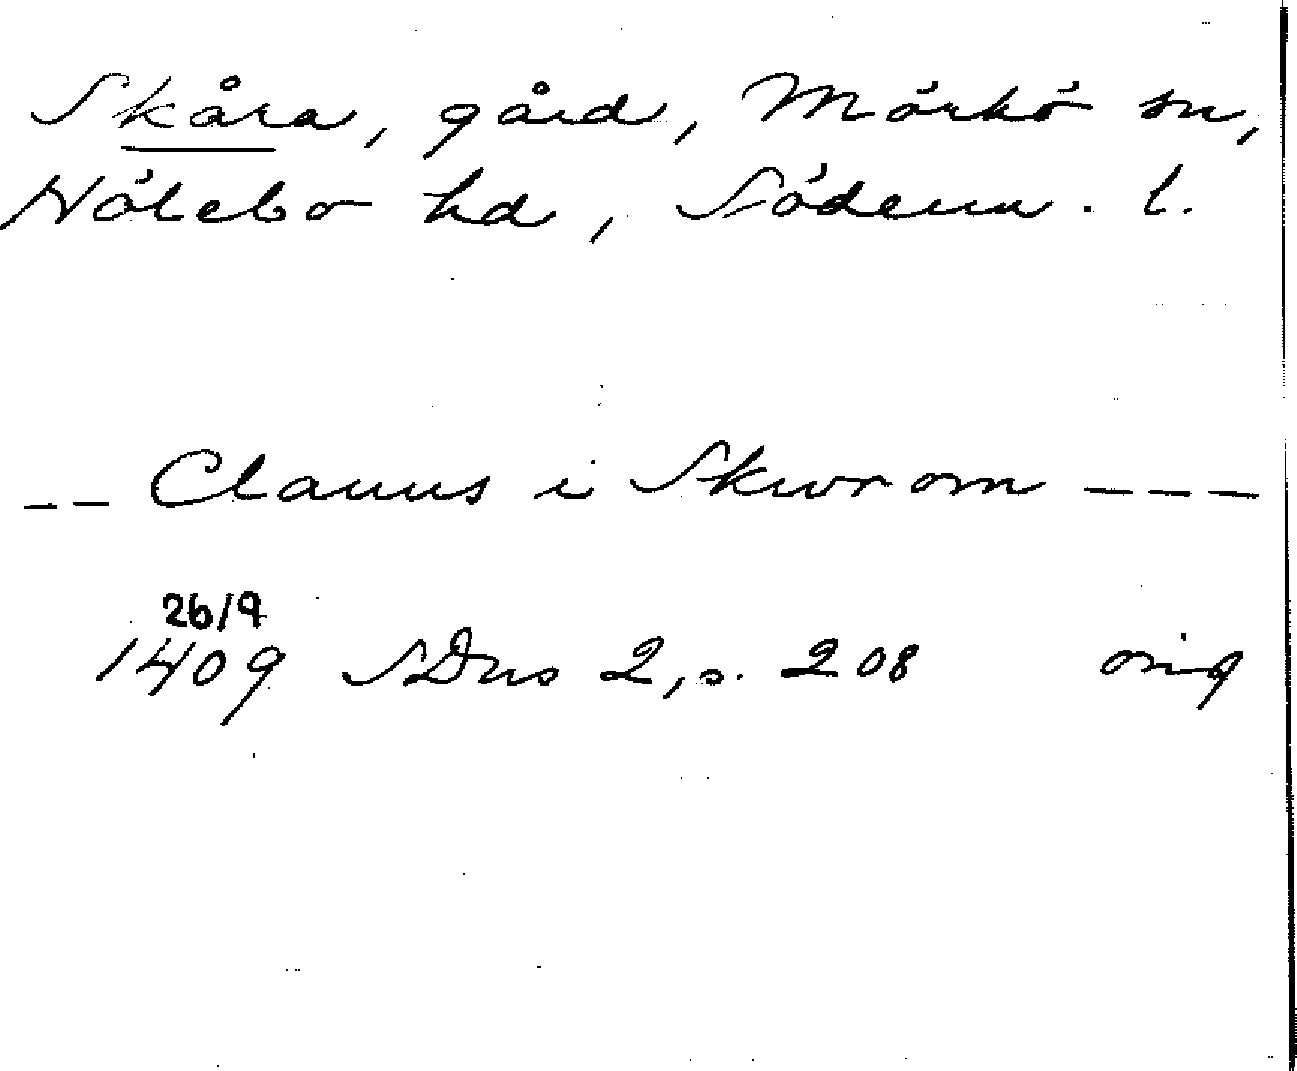 Skåra, gård, Mörkö sn,
Hölebo hd, Söderm. l.
-- Clauus i Skworom ---
26/9
1409 SDns 2, s. 208 orig